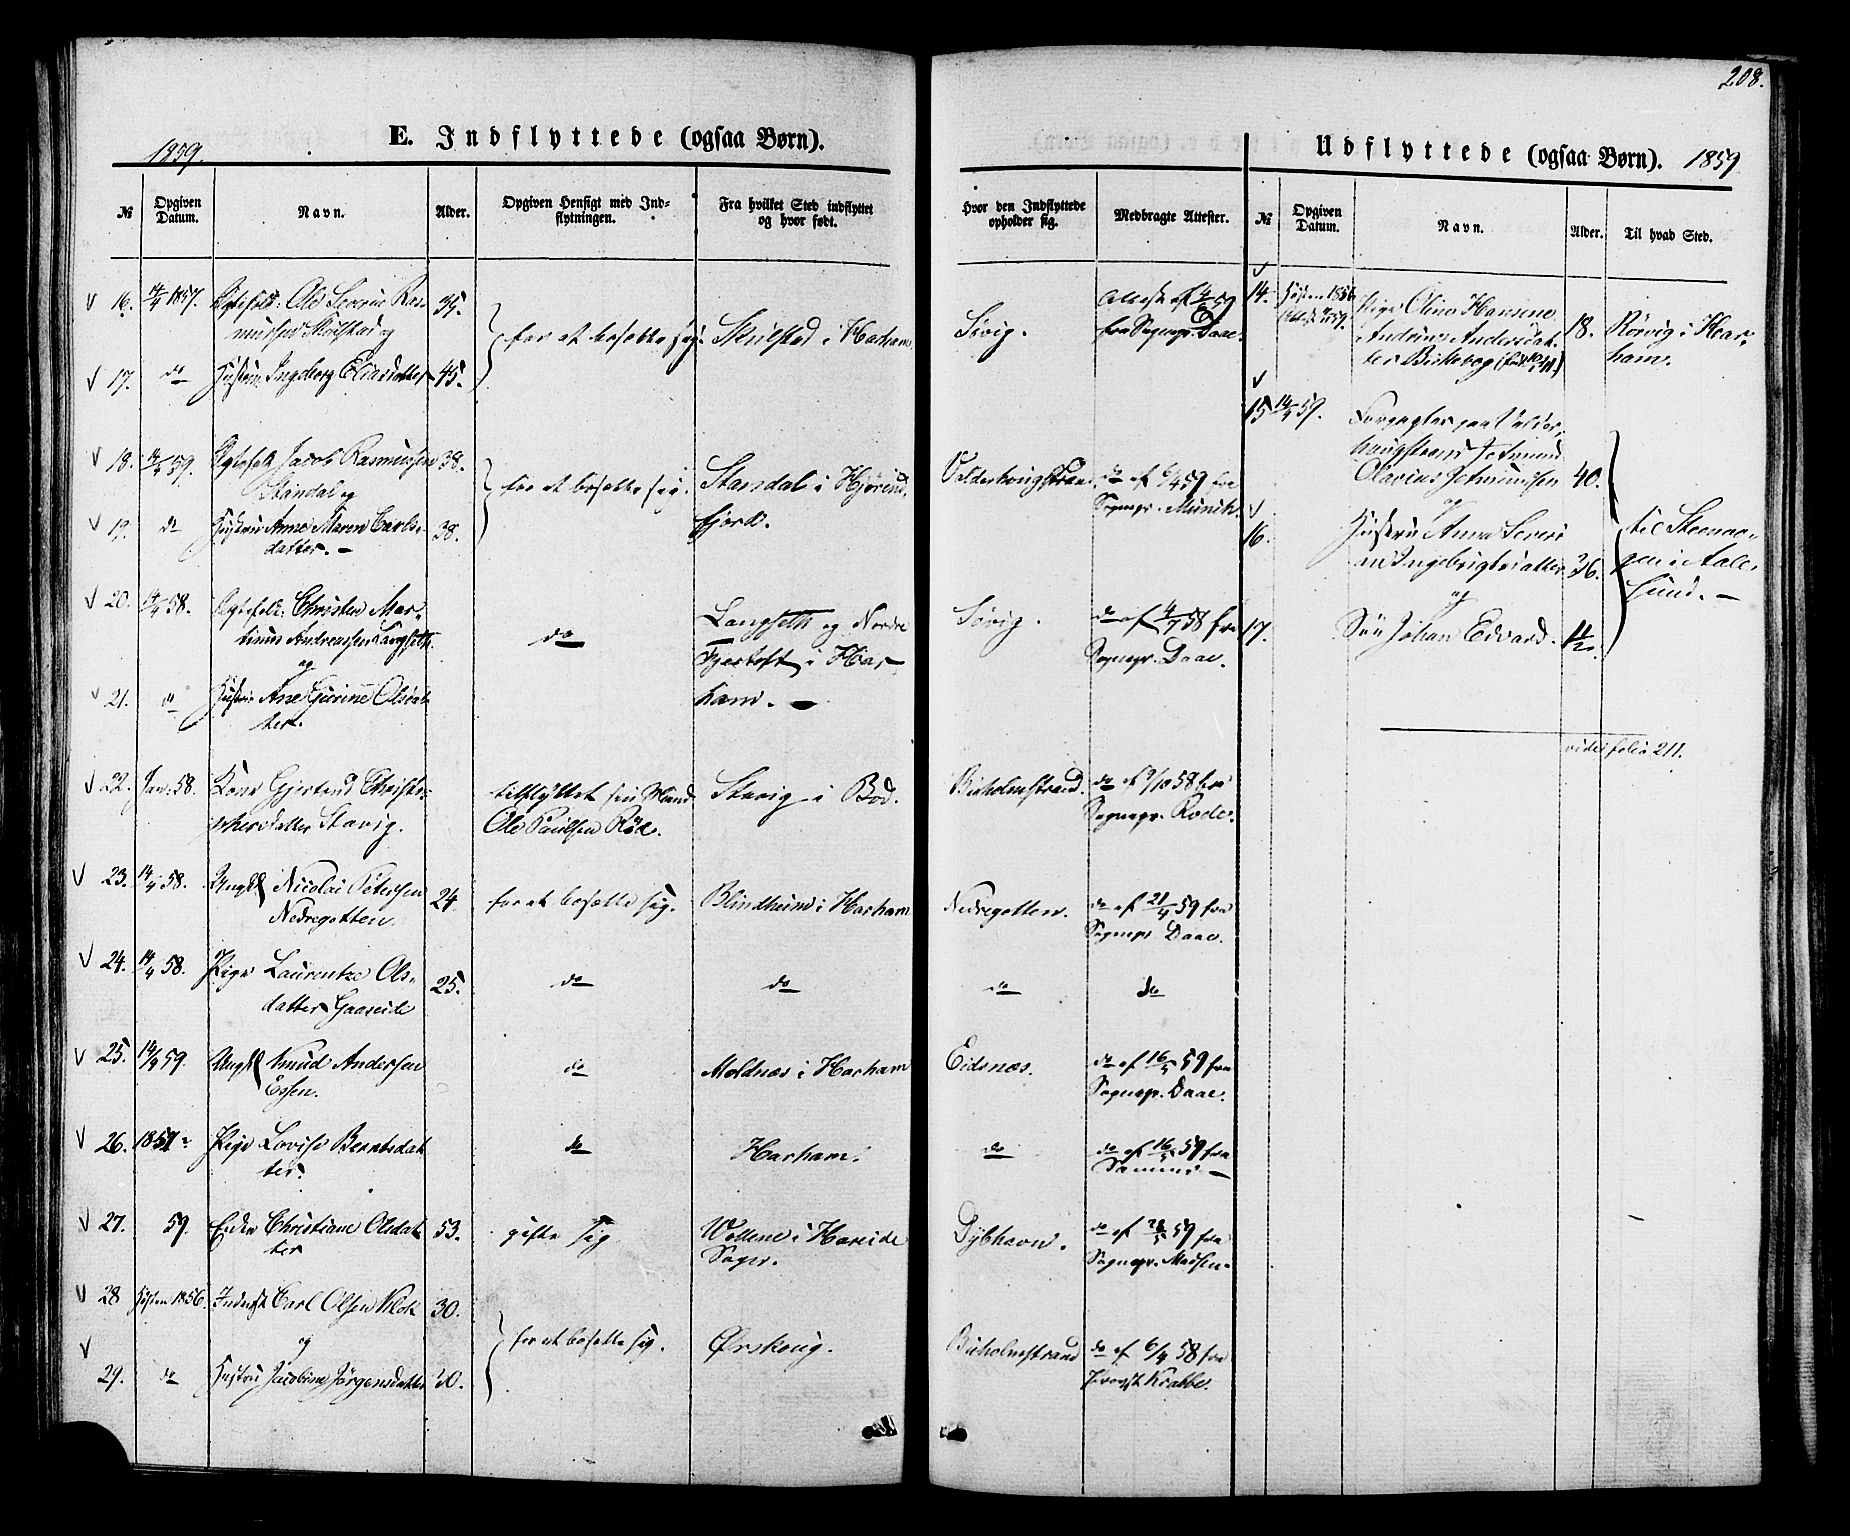 208.
1859.
E. Indflyttede (ogsaa Børn).
№
Opgiven Datum.
Navn.
Alder.
Opgiven Hensigt med Ind-
flytningen.
Fra hvilket Sted indflyttet
og hvor født.
Hvor den Indflyttede
opholder sig.
Medbragte Attester.
16. 14/4 1857. Ole Severin Ras- 35.
mussen Skulstad og
for at bosætte sig. Skulstad i Harham Søvig. Attest af
fra Sognepr. Daae.
17. do Hustru Ingeborg Eliasdatter 45.
18. 14/4 59. Ægtefolk Jacob Rasmussen 38.
Standal og
for at bosætte sig. Standal i Hjørend-
fjord.
Valderhougstrand. do af 6/4 59 fra
Sognepr. Münch.
19. do Hustru Anne Maren Carls- 38.
datter. –
20. 14/4 58. Ægtefolk: Christen Mar-
tinus Andreassen Langseth
og
do
Langseth og Nordre
Fjærtoft i Har-
ham. –
Søvig. do af 4/7 58 fra
Sognepr. Daae.
21. do Hustru Ane Gurine Olsdat-
ter.
22. Jan. 58. Kone Gjertrud Christo-
phersdatter Stavig.
tilflyttet sin Mand
Ole Paulsen Röd.
Stavig i Bod. Buholmstrand. do af 9/10 58 fra
Sognepr. Rode.
23. 14/4 58. Ungk Nicolai Petersen 24
Nedregotten.
for at bosætte sig. Blindheim i Harham Nedregotten. do af 21/4 59 fra
Sognepr Daae.
24. 14/4 58. Pige Laurentze Ols- 25.
datter Gaaseide
do do do do
25. 14/4 59. Ungk Knud Andersen
Essen.
do Moldnæs i Harham Eidsnæs. do af 16/5 59 fra
Sognepr. Daae.
26. 1857 Pige Lovise Berntsdat-
ter.
do Harham. do do af 16/5 59 fra
Samme –
27. 59. Enke Christiane Olsdat- 53.
ter
gifte sig i Hareide
Sogn.
Dybhavn. do af 28/5 59 fra
Sognepr.
28 Høsten 1856. Inderst Carl Olsen Klok 30.
og
for at bosætte sig. Ørskoug. Buholmstrand do af 6/4 58 fra
Provst Krabbe.
29. do Hustru Jacobine Jørgensdatter 30.
Udflyttede (ogsaa Børn). 1859
№
Opgiven Datum.
Navn.
Alder.
Til hvad Sted.
14. Høsten 1856 Pige Oline Hansine
Andrine Andersdat- 18. Rørvig i Har-
ter ham.
15 14/4 59. Forpagter paa Valder-
hougstrand Jetmund
Olavius Jetmundsen 40.
og
16. Hustru Anna Severi-
ne Ingebrigtsdatter 36.
og
til Steenvaa-
gen i Aale-
sund. –
17. Søn Johan Edvard. 1½.
vide folio 211.